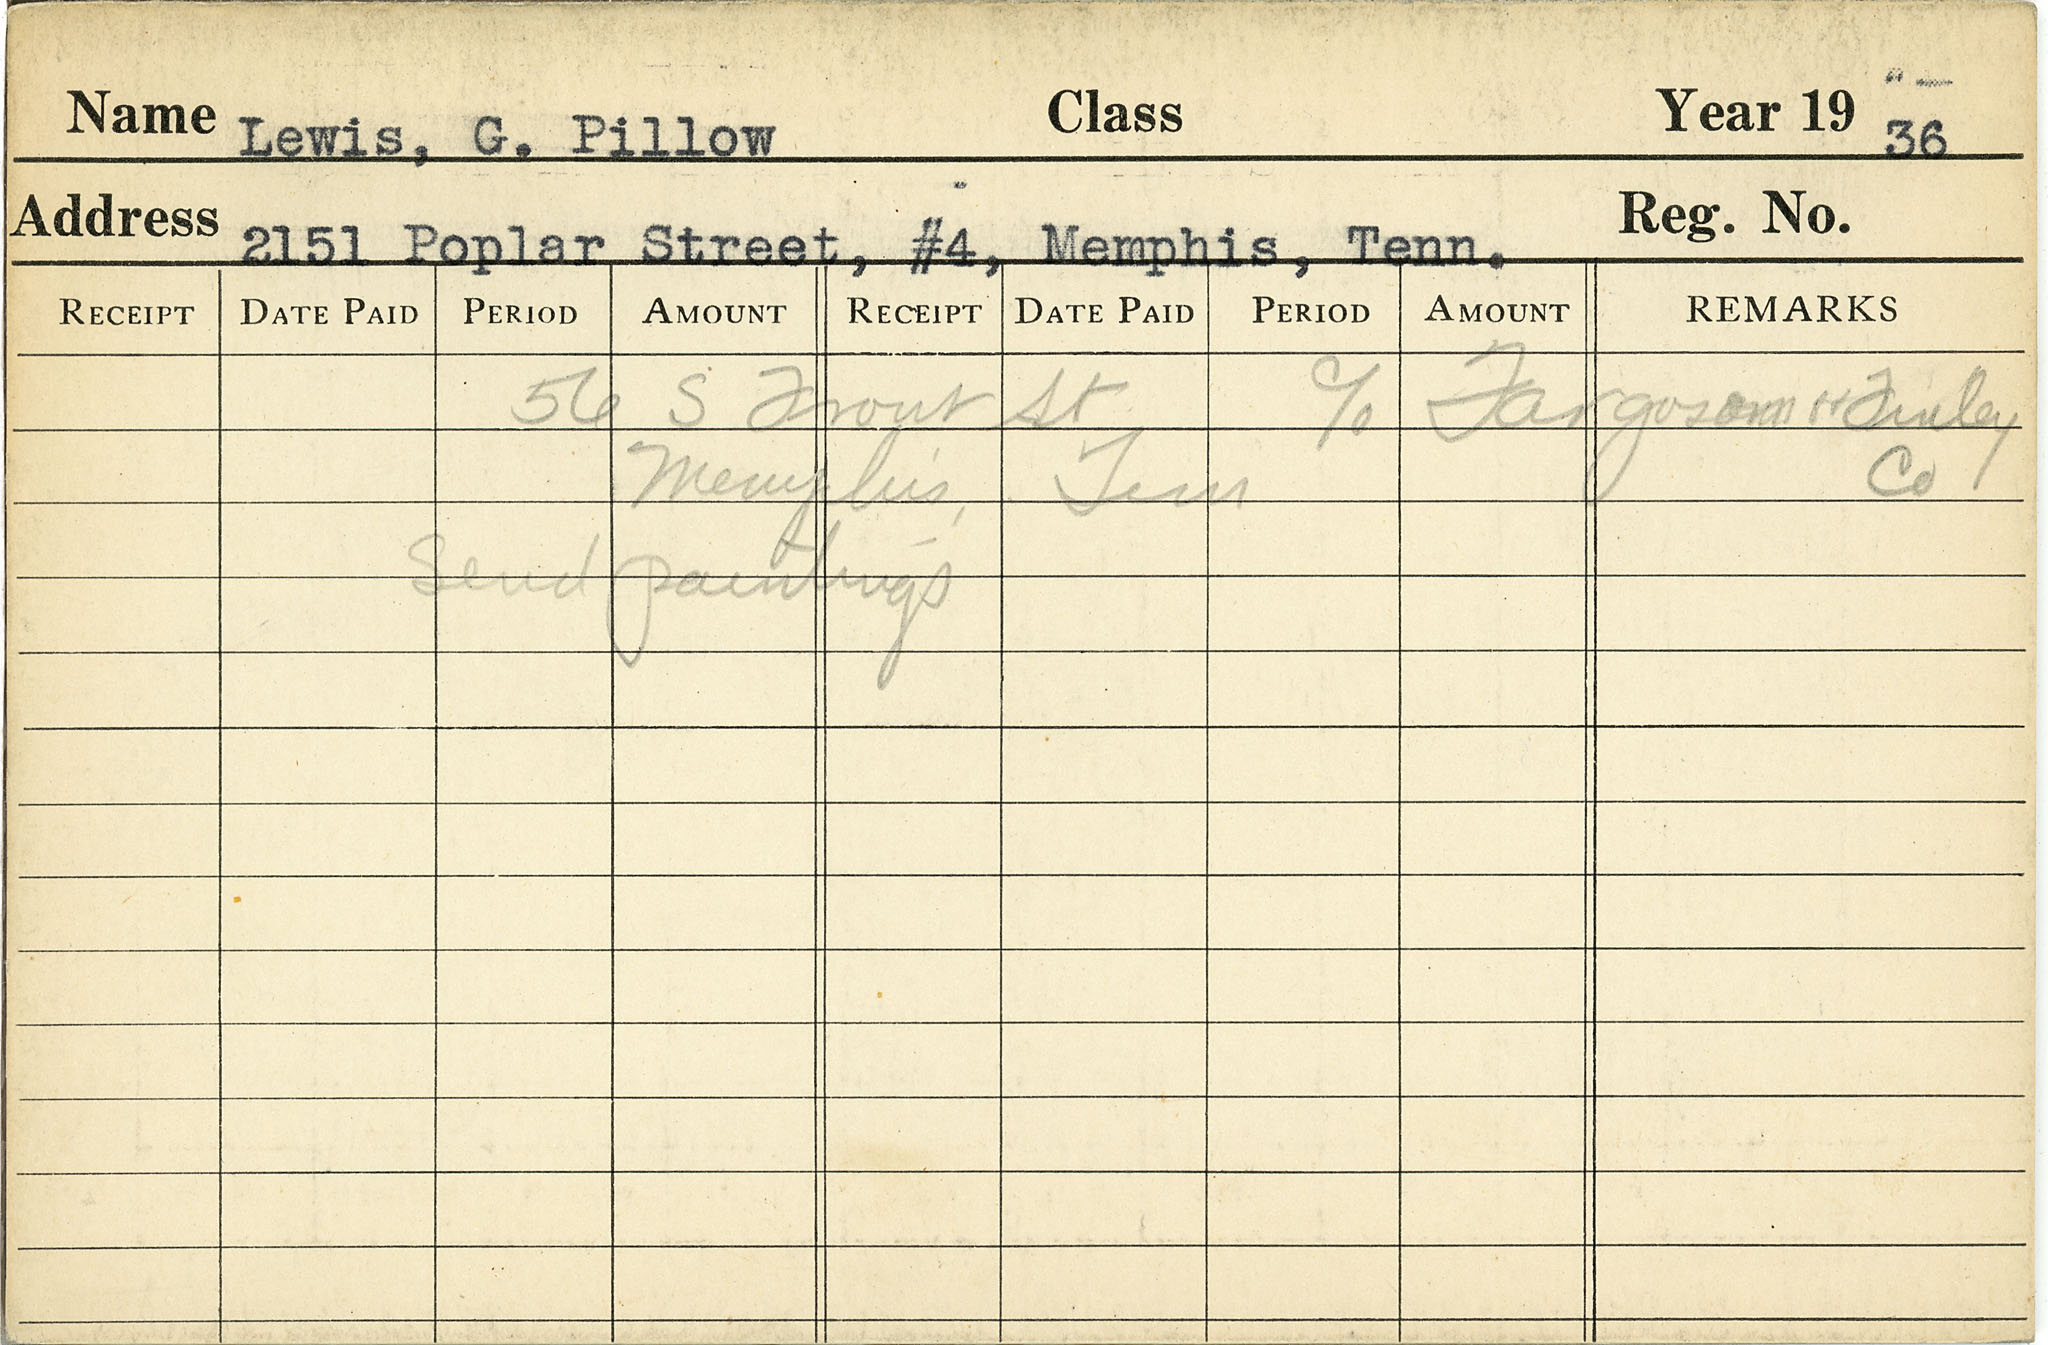 Name Lewis, G. Pillow Class Year 19 36
Address 2151 Poplar Street, #4, Memphis, Tenn. Reg. No.
RECEIPT DATE PAID PERIOD AMOUNT RECEIPT DATE PAID PERIOD AMOUNT REMARKS
56 S Front St c/o Fargoson Finley
Memphis, Tenn Co
Send paintings